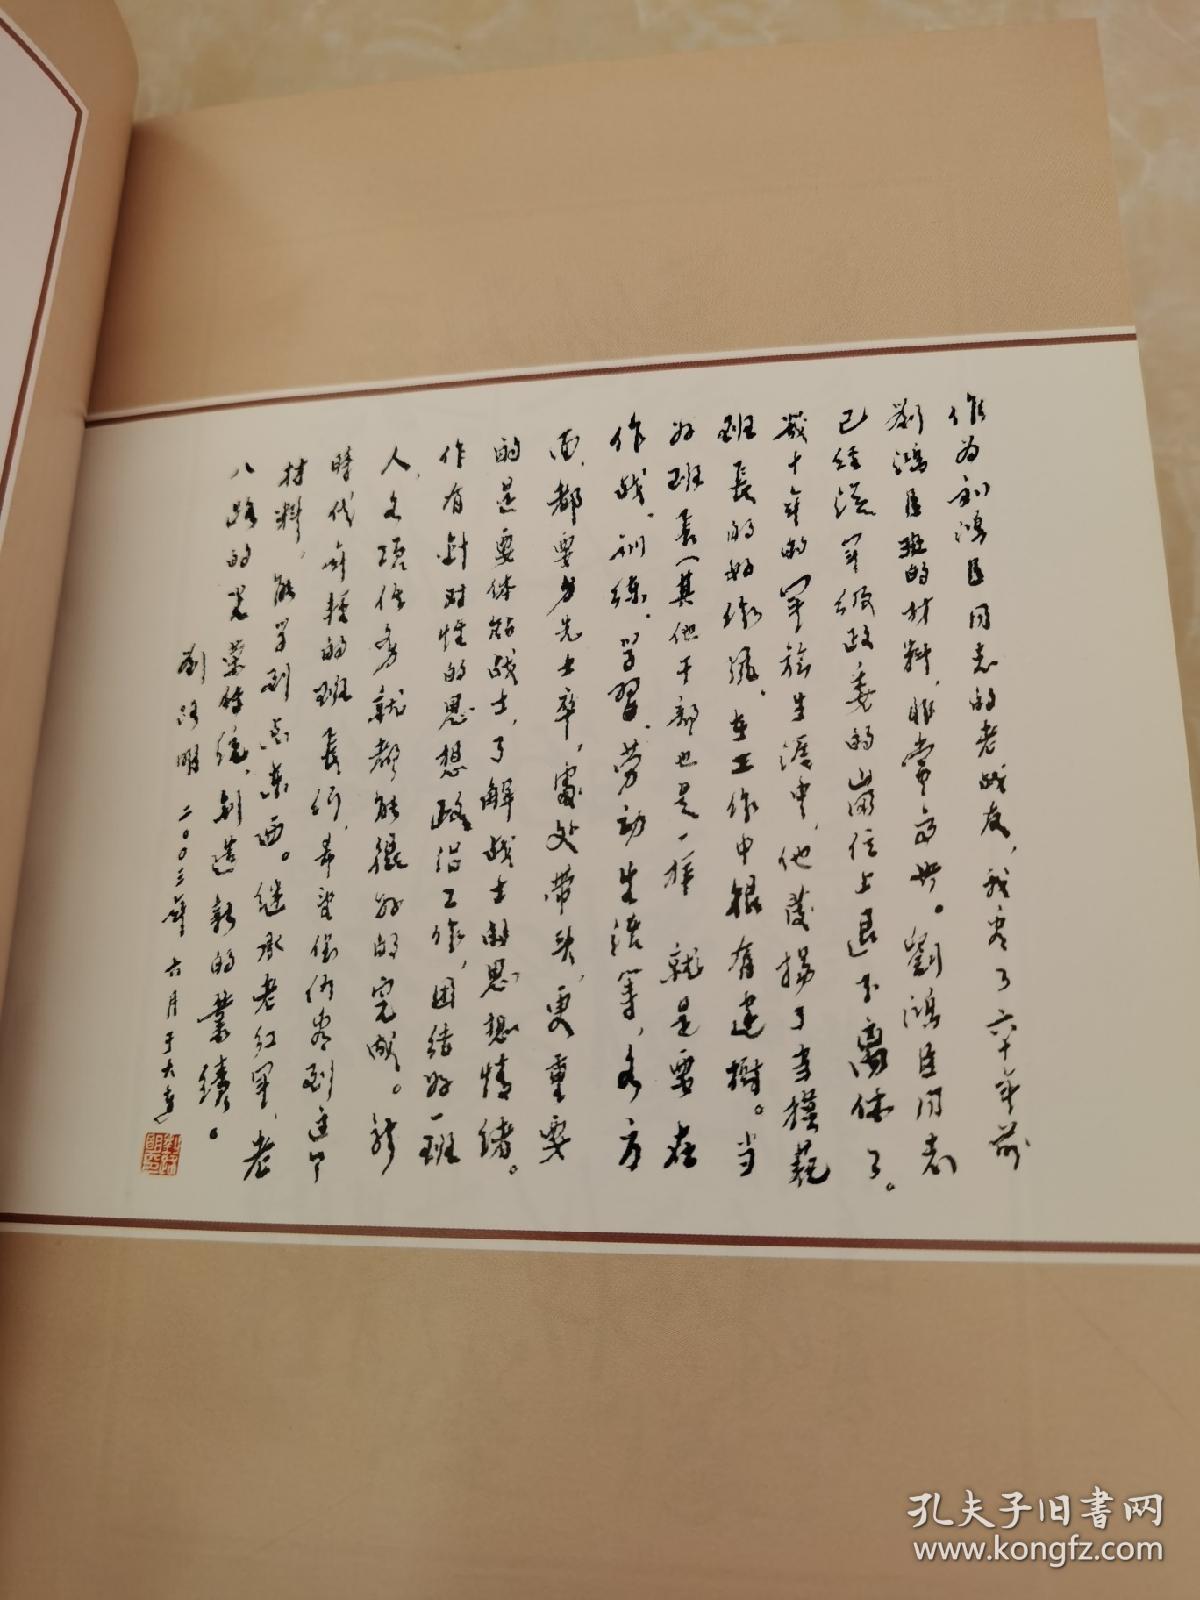 作为刘鸿臣同志的老战友，我看了六十年前
劉鸿臣班的材料，非常高兴。劉鸿臣同志
已经从军级政委的崗位上退下离休了。
数十年的军旅生涯中，他发揚了当模範
班長的好作風，在工作中很有建樹。当
好班長（其他干部也是一样 就是要在
作战、训练、学習、劳动生活等，各方
面，都要身先士卒，處处带头，更重要
的是要体贴战士，了解战士的思想情绪。
作有針对性的思想政治工作，团结好一班
人，各项任务就都能很好的完成。新
時代年轻的班長们，希望你们看到这个
材料，能学到点東西。继承老红军、老
八路的光荣传统，創造新的業績。
劉路明 二〇〇三年六月于大連
孔夫子旧书网
www.kongfz.com